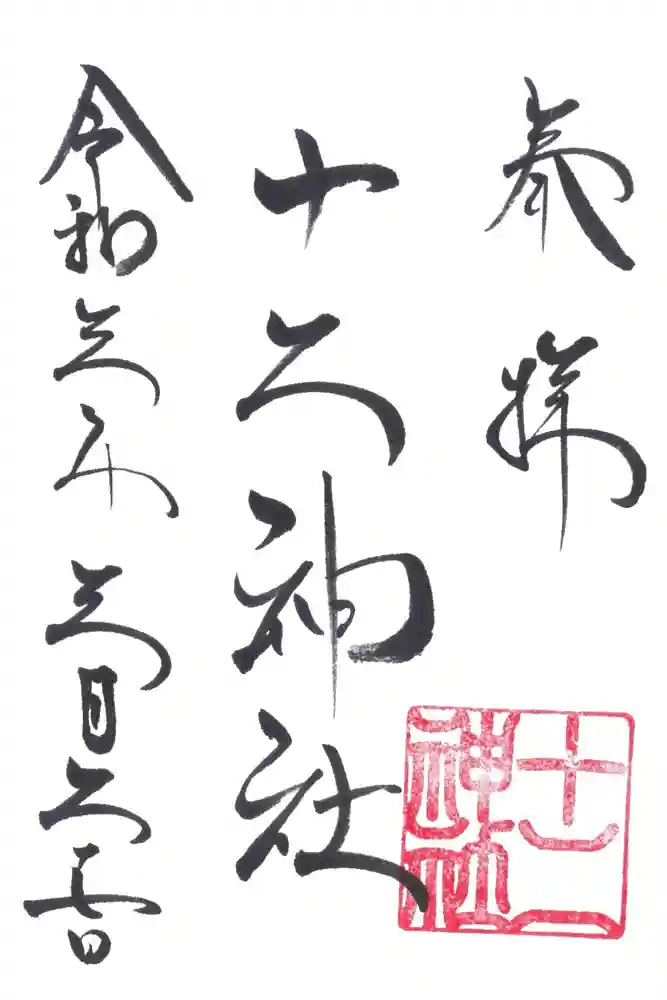 奉拝
十二神社
令和三年三月二十七日
十二神社